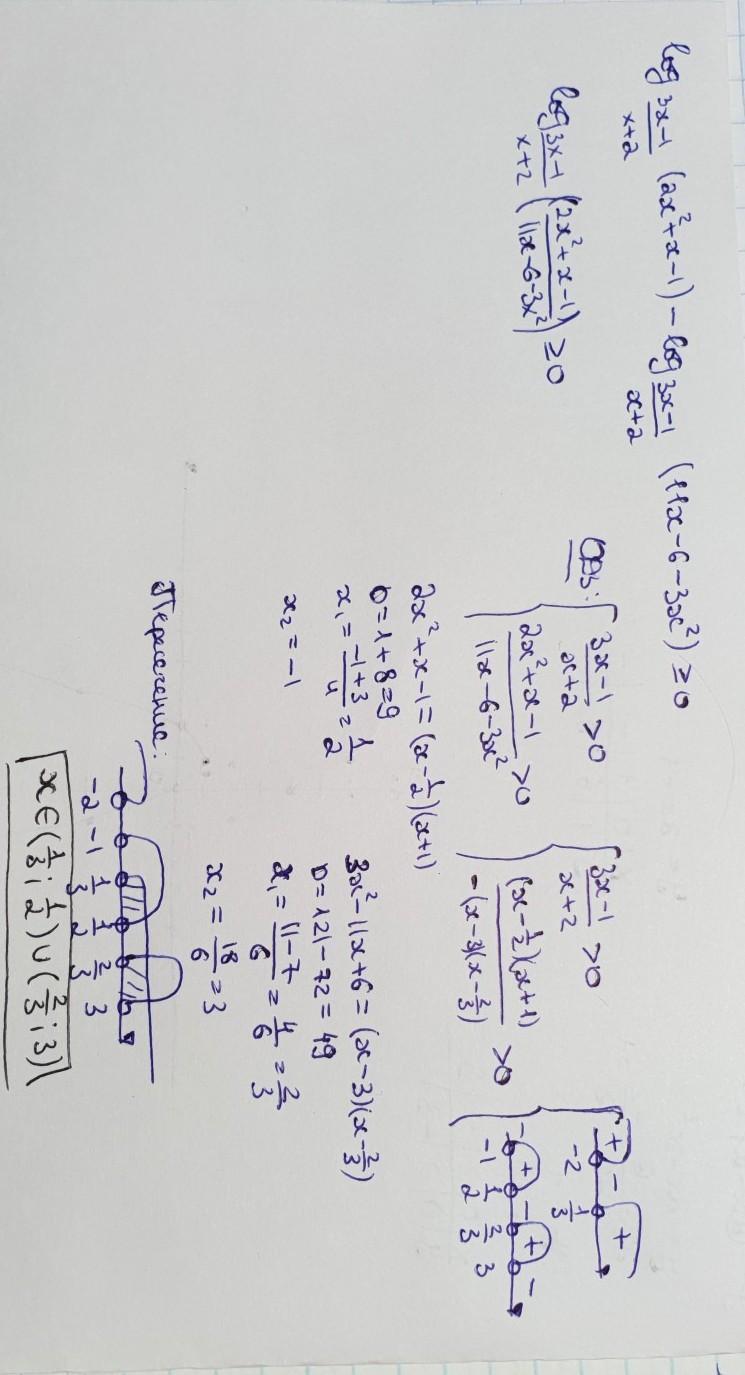 log_{\frac{3x-1}{x+2}} (2x²+x-1) - log_{\frac{3x-1}{x+2}} (11x-6-3x²) ≥ 0
log_{\frac{3x-1}{x+2}} (\frac{2x²+x-1}{11x-6-3x²}) ≥ 0
ОДЗ: { \frac{3x-1}{x+2} > 0 { \frac{3x-1}{x+2} > 0 { + -2 - \frac{1}{3} +
{ \frac{2x²+x-1}{11x-6-3x²} > 0 { \frac{(x-\frac{1}{2})(x+1)}{-(x-3)(x-\frac{2}{3})} > 0 { - -1 + \frac{1}{2} - \frac{2}{3} + 3 -
2x²+x-1 = (x-\frac{1}{2})(x+1)
D=1+8=9
x₁ = \frac{-1+3}{4} = \frac{1}{2}
x₂ = -1
3x²-11x+6 = (x-3)(x-\frac{2}{3})
D=121-72=49
x₁ = \frac{11-7}{6} = \frac{4}{6} = \frac{2}{3}
x₂ = \frac{18}{6} = 3
Пересечение:
-2 -1 \frac{1}{3} \frac{1}{2} \frac{2}{3} 3
x∈(\frac{1}{3};\frac{1}{2})∪(\frac{2}{3};3)